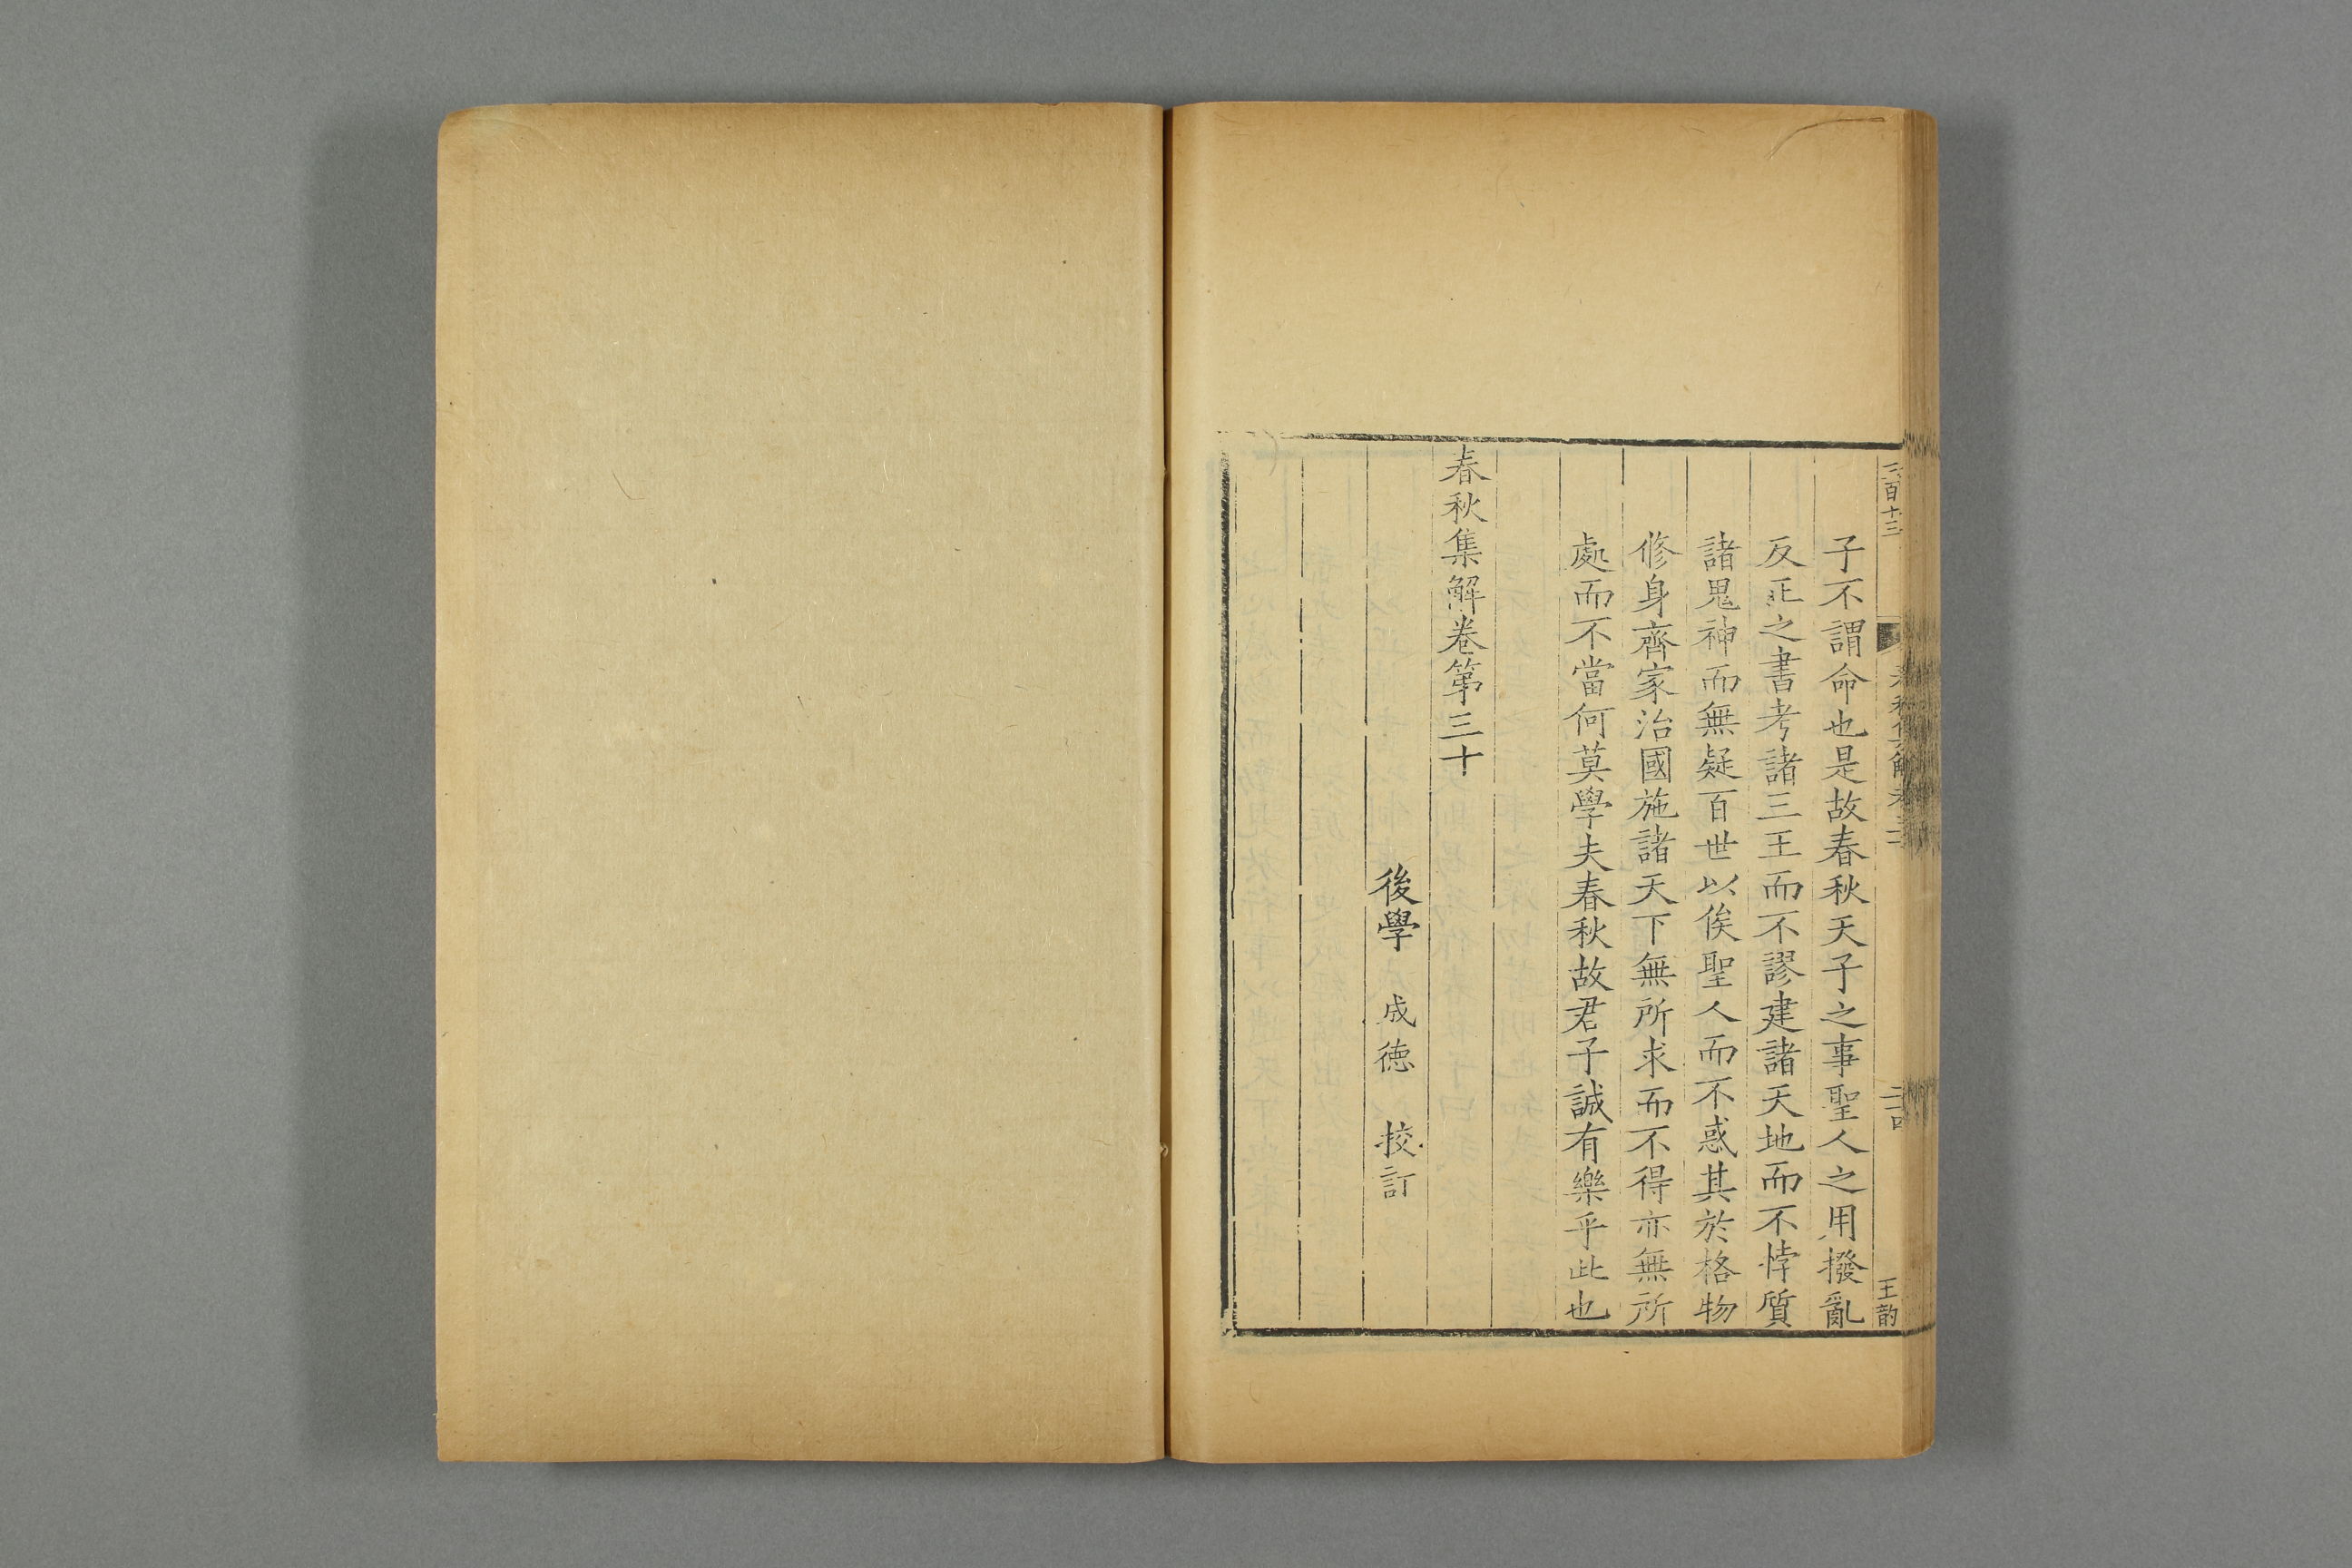 三百十三
春秋集解卷三十
二十四
王韵
子不謂命也是故春秋天子之事聖人之用撥亂
反正之書考諸三王而不謬建諸天地而不悖質
諸鬼神而無疑百世以俟聖人而不惑其於格物
修身齊家治國施諸天下無所求而不得亦無所
處而不當何莫學夫春秋故君子誠有樂乎此也
春秋集解卷第三十
後學 成德 挍訂